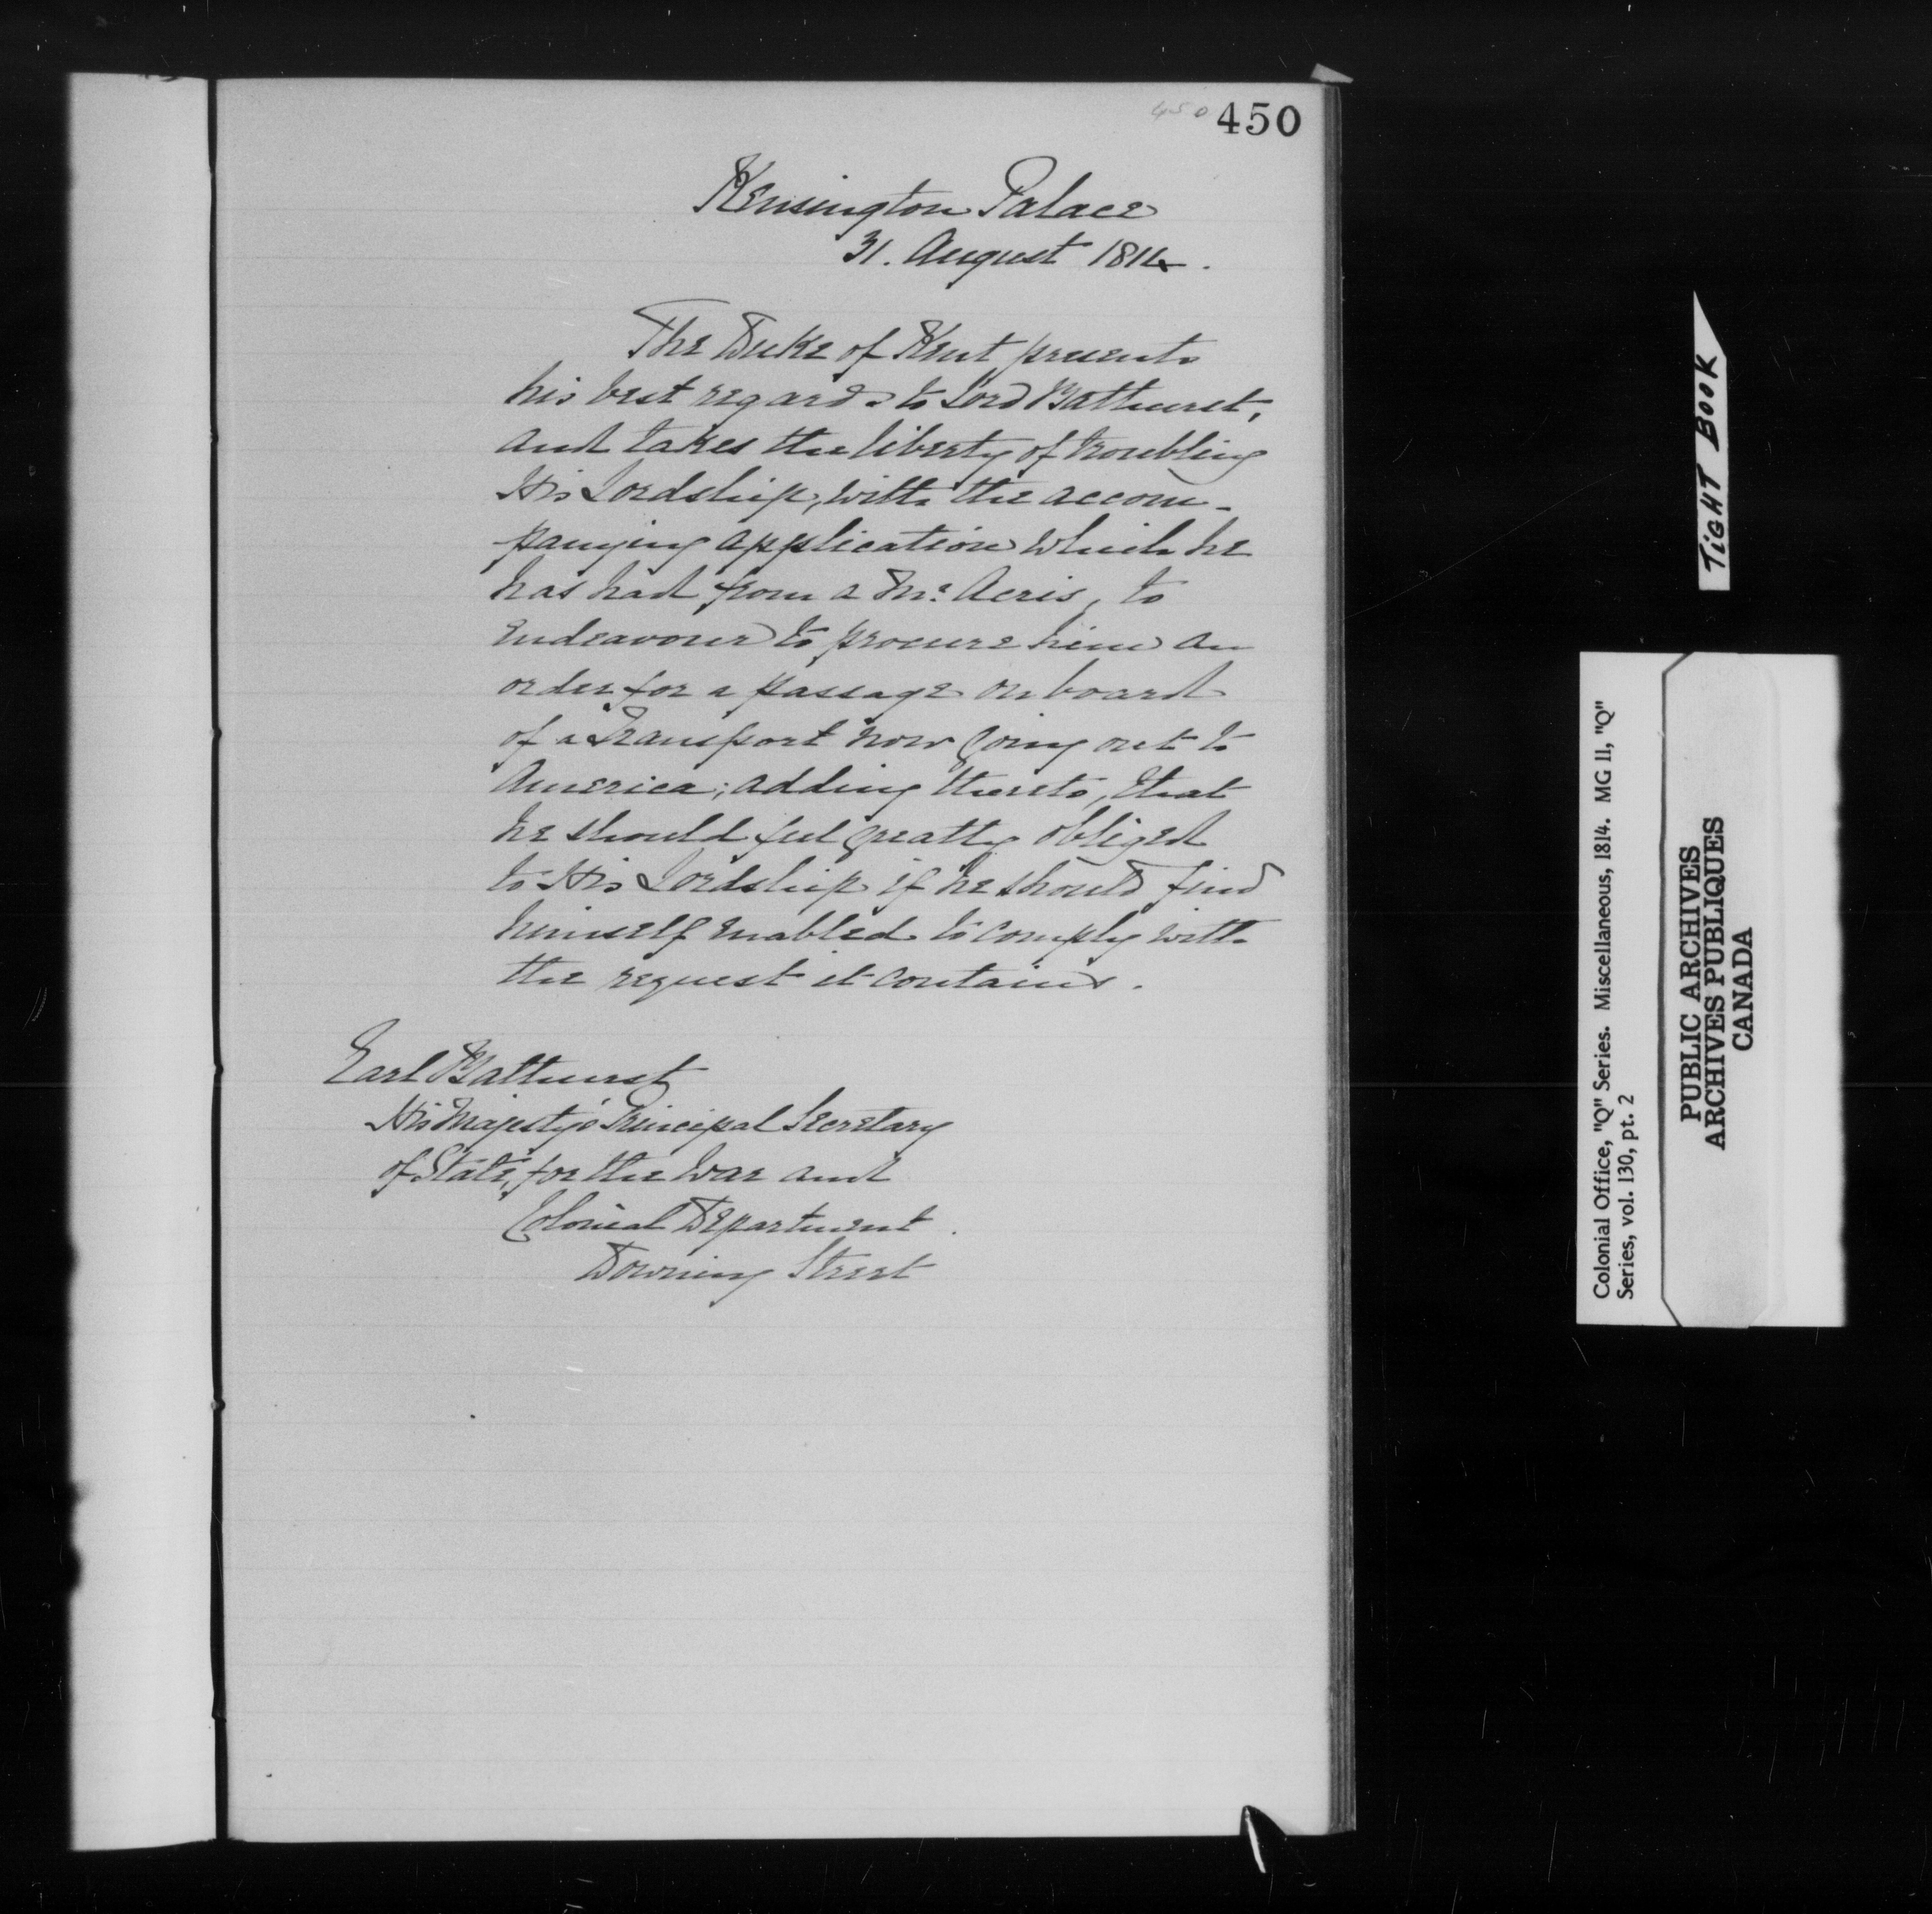 450 450
Kensington Palace
31. August 1814.
The Duke of Kent presents
his best regards to Lord Bathurst,
and takes the liberty of troubling
His Lordship, with the accom-
panying application which he
has had from a Mr. Acris, to
endeavour to procure him an
order for a passage on board
of a Transport now going out to
America; adding thereto, that
he should feel greatly obliged
to His Lordship if he should find
himself enabled to comply with
the request it contains.
Earl Bathurst
His Majesty's Principal Secretary
of State, for the War and
Colonial Department.
Downing Street
TIGHT BOOK
Colonial Office, "Q" Series. Miscellaneous, 1814. MG 11, "Q"
Series, vol. 130, pt. 2
PUBLIC ARCHIVES
ARCHIVES PUBLIQUES
CANADA